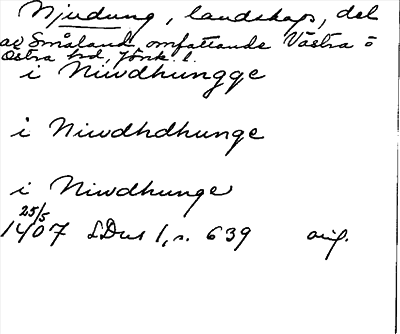 Njudung, landskap, del
av Småland, omfattande Västra o
Östra hd, Jönk. l.
i Niwdhungge
i Niwdhdhunge
i Niwdhunge
25/5
1407 SDns 1, s. 639 orig.